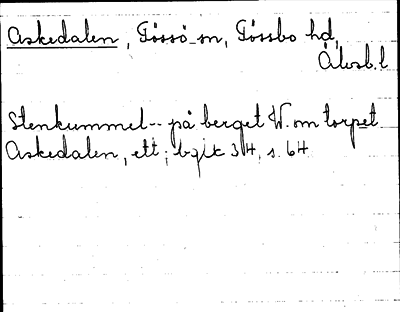 Askedalen, Tössö sn, Tössbo hd,
Älvsb. l
Stenkummel -- på berget W. om torpet
Askedalen, ett; bgic 34, s. 64